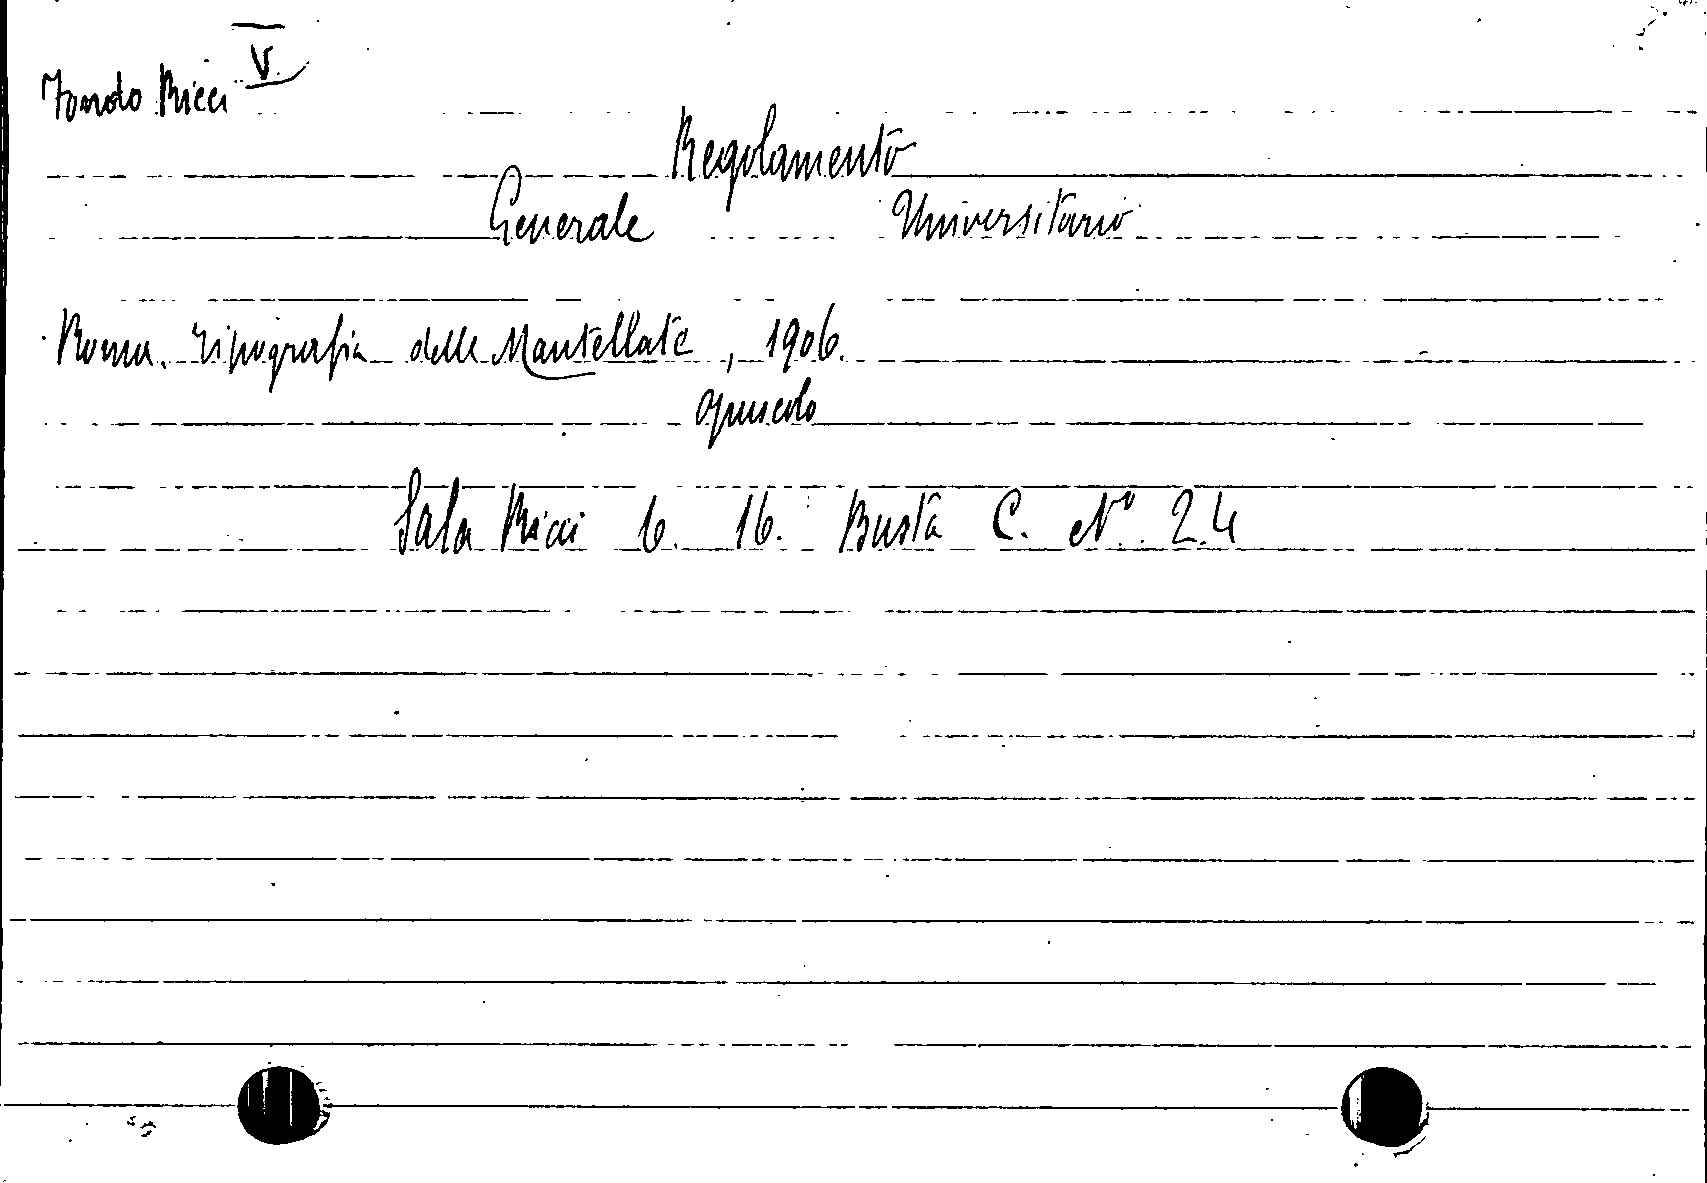 Fondo Ricci V
Regolamento
Generale Universitario
Roma. Tipografia delle Mantellate, 1906.
opuscolo
Sala Ricci 6. 16. Busta C. N° 24